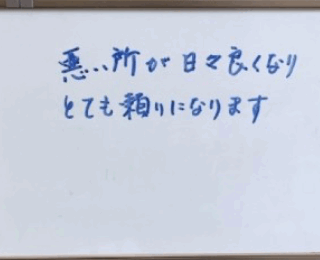 悪い所が日々良くなり
とても頼りになります